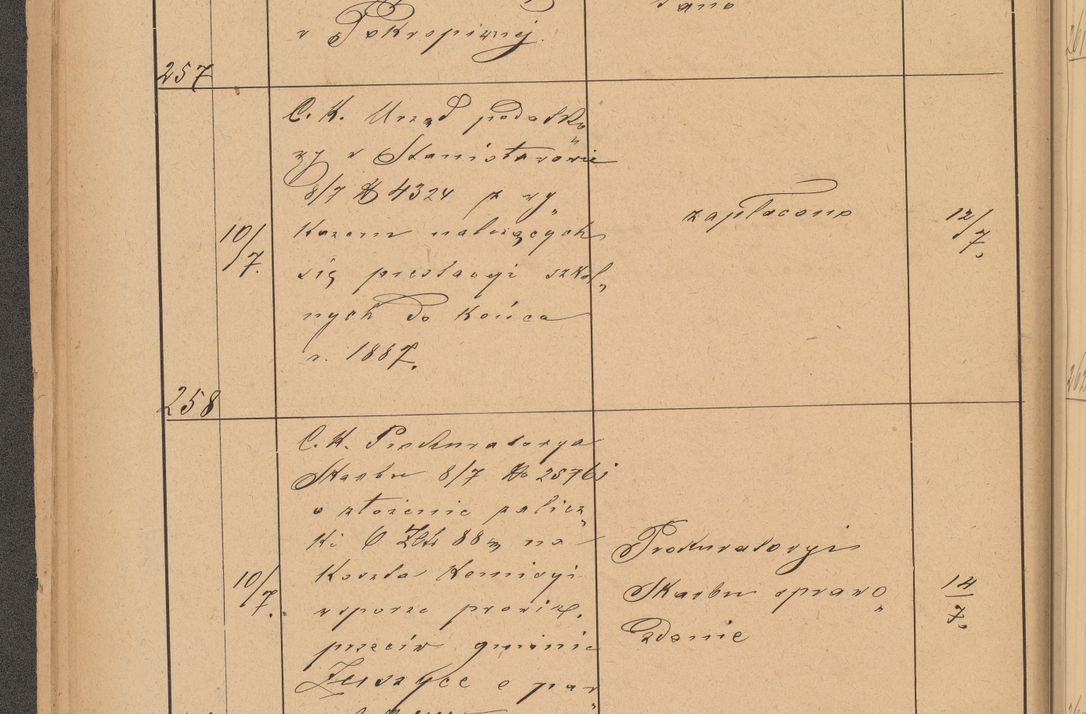 w Pokropiwnej
257
C. K. Urząd podatko„
wy w Stanisławowie
8/7 N 4324 z wy„
10/7.
kazem należących
się prestacyi szkol„
nych do końca
r. 1887.
zapłacono
12/7.
258
C. K. Prokuratorya
Skarbu 8/7 No 25761
o złożenie zalicz„
ki 6 Złr 88 na
10/7.
koszta Komisyi
w sporze prowiz.
przeciw gminie
o par„
Prokuratoryi
Skarbu sprawo„
zdanie
14/7.